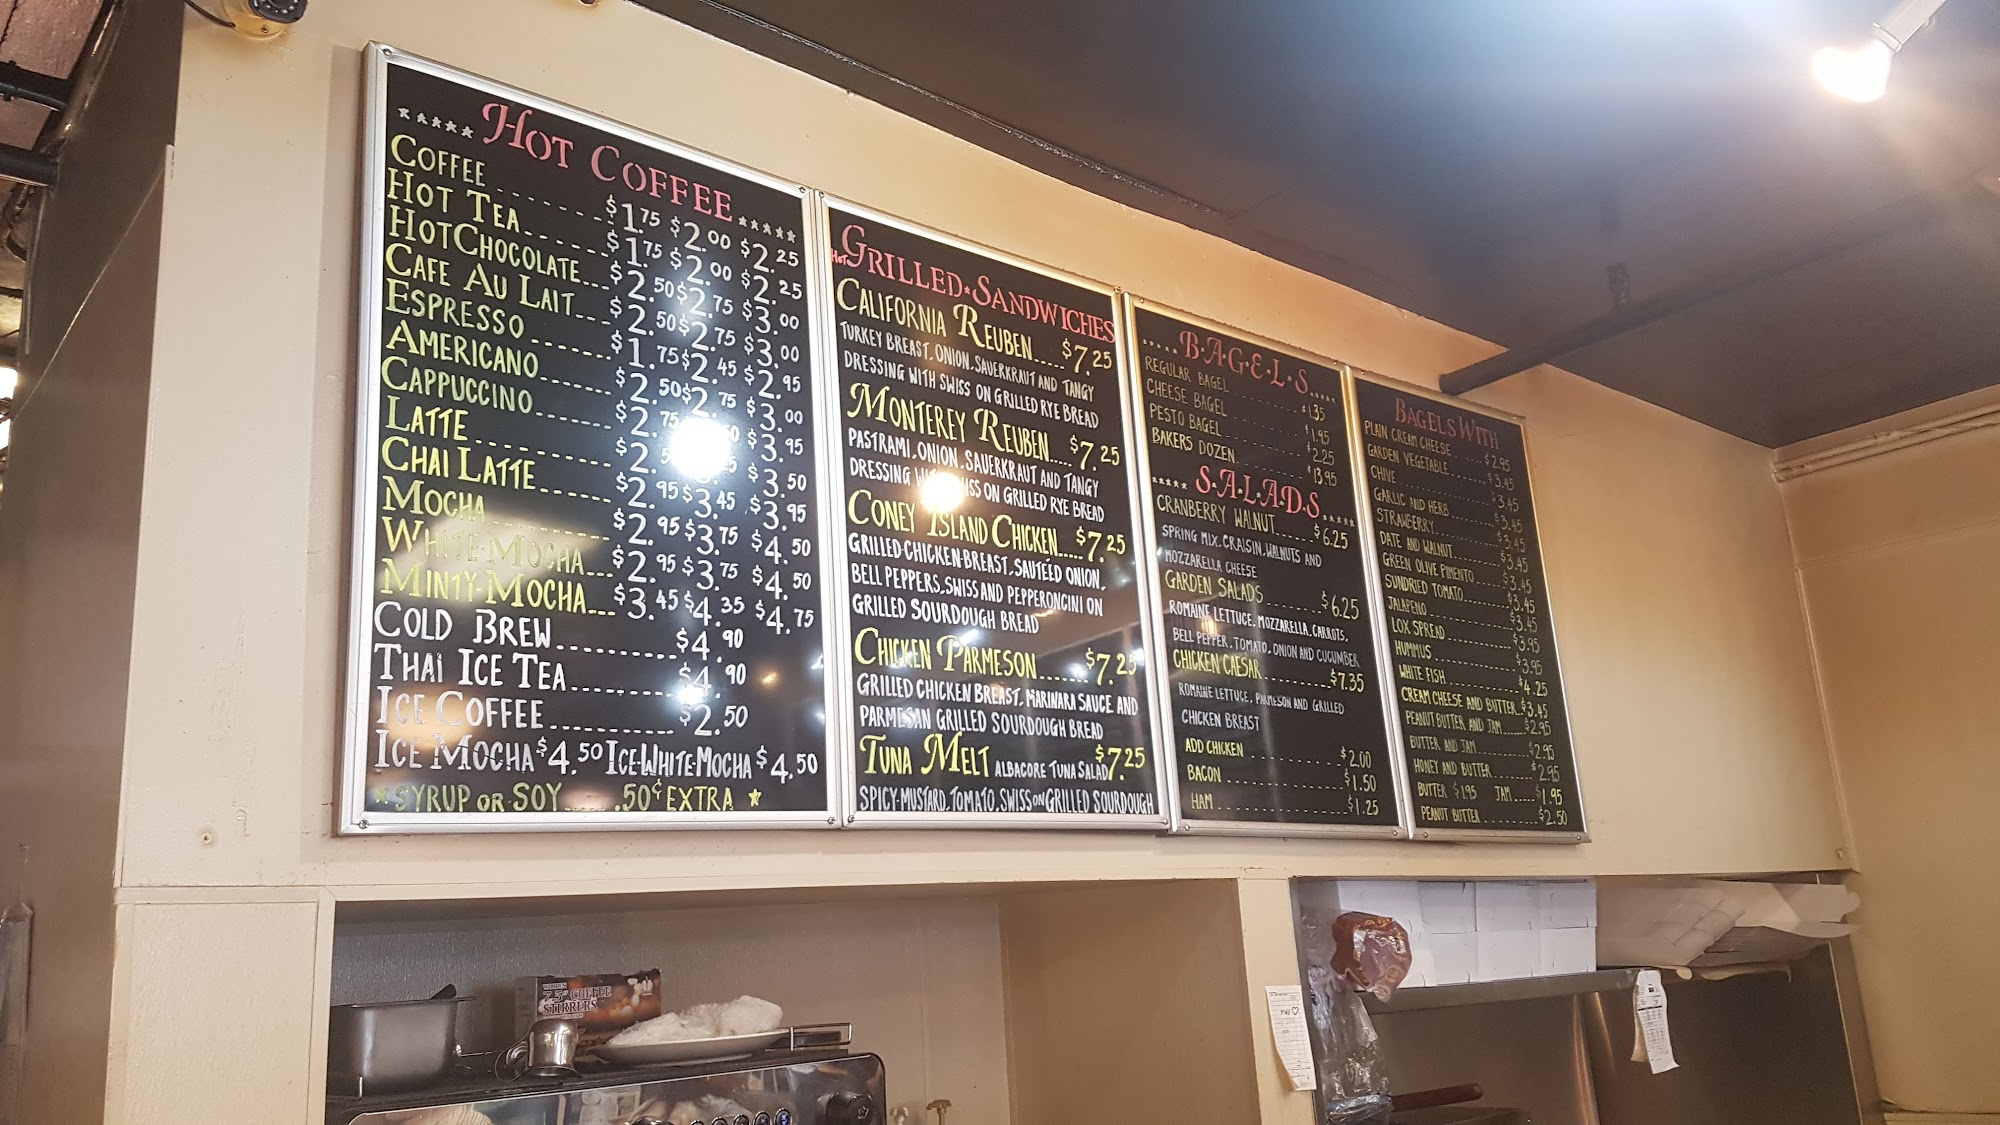 ***** HOT COFFEE *****
COFFEE $1.75 $2.00 $2.25
HOT TEA $1.75 $2.00 $2.25
HOT CHOCOLATE $2.50 $2.75 $3.00
CAFE AU LAIT $2.50 $2.75 $3.00
ESPRESSO $1.75 $2.45 $2.95
AMERICANO $2.50 $2.75 $3.00
CAPPUCCINO $2.75 $3.95
LATTE $3.50
CHAI LATTE $2.95 $3.45 $3.95
MOCHA $2.95 $3.75 $4.50
WHITE-MOCHA $2.95 $3.75 $4.50
MINTY-MOCHA $3.45 $4.35 $4.75
COLD BREW $4.90
THAI ICE TEA $4.90
ICE COFFEE $2.50
ICE MOCHA $4.50 ICE-WHITE-MOCHA $4.50
SYRUP OR SOY .50¢ EXTRA
HOT GRILLED SANDWICHES
CALIFORNIA REUBEN $7.25
TURKEY BREAST, ONION, SAUERKRAUT AND TANGY
DRESSING WITH SWISS ON GRILLED RYE BREAD
MONTEREY REUBEN $7.25
PASTRAMI, ONION, SAUERKRAUT AND TANGY
DRESSING WITH SWISS ON GRILLED RYE BREAD
CONEY ISLAND CHICKEN $7.25
GRILLED-CHICKEN-BREAST, SAUTÉED ONION,
BELL PEPPERS, SWISS AND PEPPERONCINI ON
GRILLED SOURDOUGH BREAD
CHICKEN PARMESON $7.25
GRILLED CHICKEN BREAST, MARINARA SAUCE AND
PARMESAN GRILLED SOURDOUGH BREAD
TUNA MELT ALBACORE TUNA SALAD $7.25
SPICY-MUSTARD, TOMATO, SWISS ON GRILLED SOURDOUGH
B·A·G·E·L·S
REGULAR BAGEL $1.35
CHEESE BAGEL $1.95
PESTO BAGEL $2.25
BAKERS DOZEN $13.95
S·A·L·A·D·S
CRANBERRY WALNUT $6.25
SPRING MIX, CRAISIN, WALNUTS AND
MOZZARELLA CHEESE
GARDEN SALADS $6.25
ROMAINE LETTUCE, MOZZARELLA, CARROTS,
BELL PEPPER, TOMATO, ONION AND CUCUMBER
CHICKEN CAESAR $7.35
ROMAINE LETTUCE, PARMESON AND GRILLED
CHICKEN BREAST
ADD CHICKEN $2.00
BACON $1.50
HAM $1.25
BAGELS WITH
PLAIN CREAM CHEESE $2.95
GARDEN VEGETABLE $3.45
CHIVE $3.45
GARLIC AND HERB $3.45
STRAWBERRY $3.45
DATE AND WALNUT $3.45
GREEN OLIVE PIMENTO $3.45
SUNDRIED TOMATO $3.45
JALAPENO $3.45
LOX SPREAD $3.95
HUMMUS $3.95
WHITE FISH $4.25
CREAM CHEESE AND BUTTER $3.45
PEANUT BUTTER AND JAM $2.95
BUTTER AND JAM $2.95
HONEY AND BUTTER $2.95
BUTTER $1.95 JAM $1.95
PEANUT BUTTER $2.50
7.5" COFFEE
STIRRERS